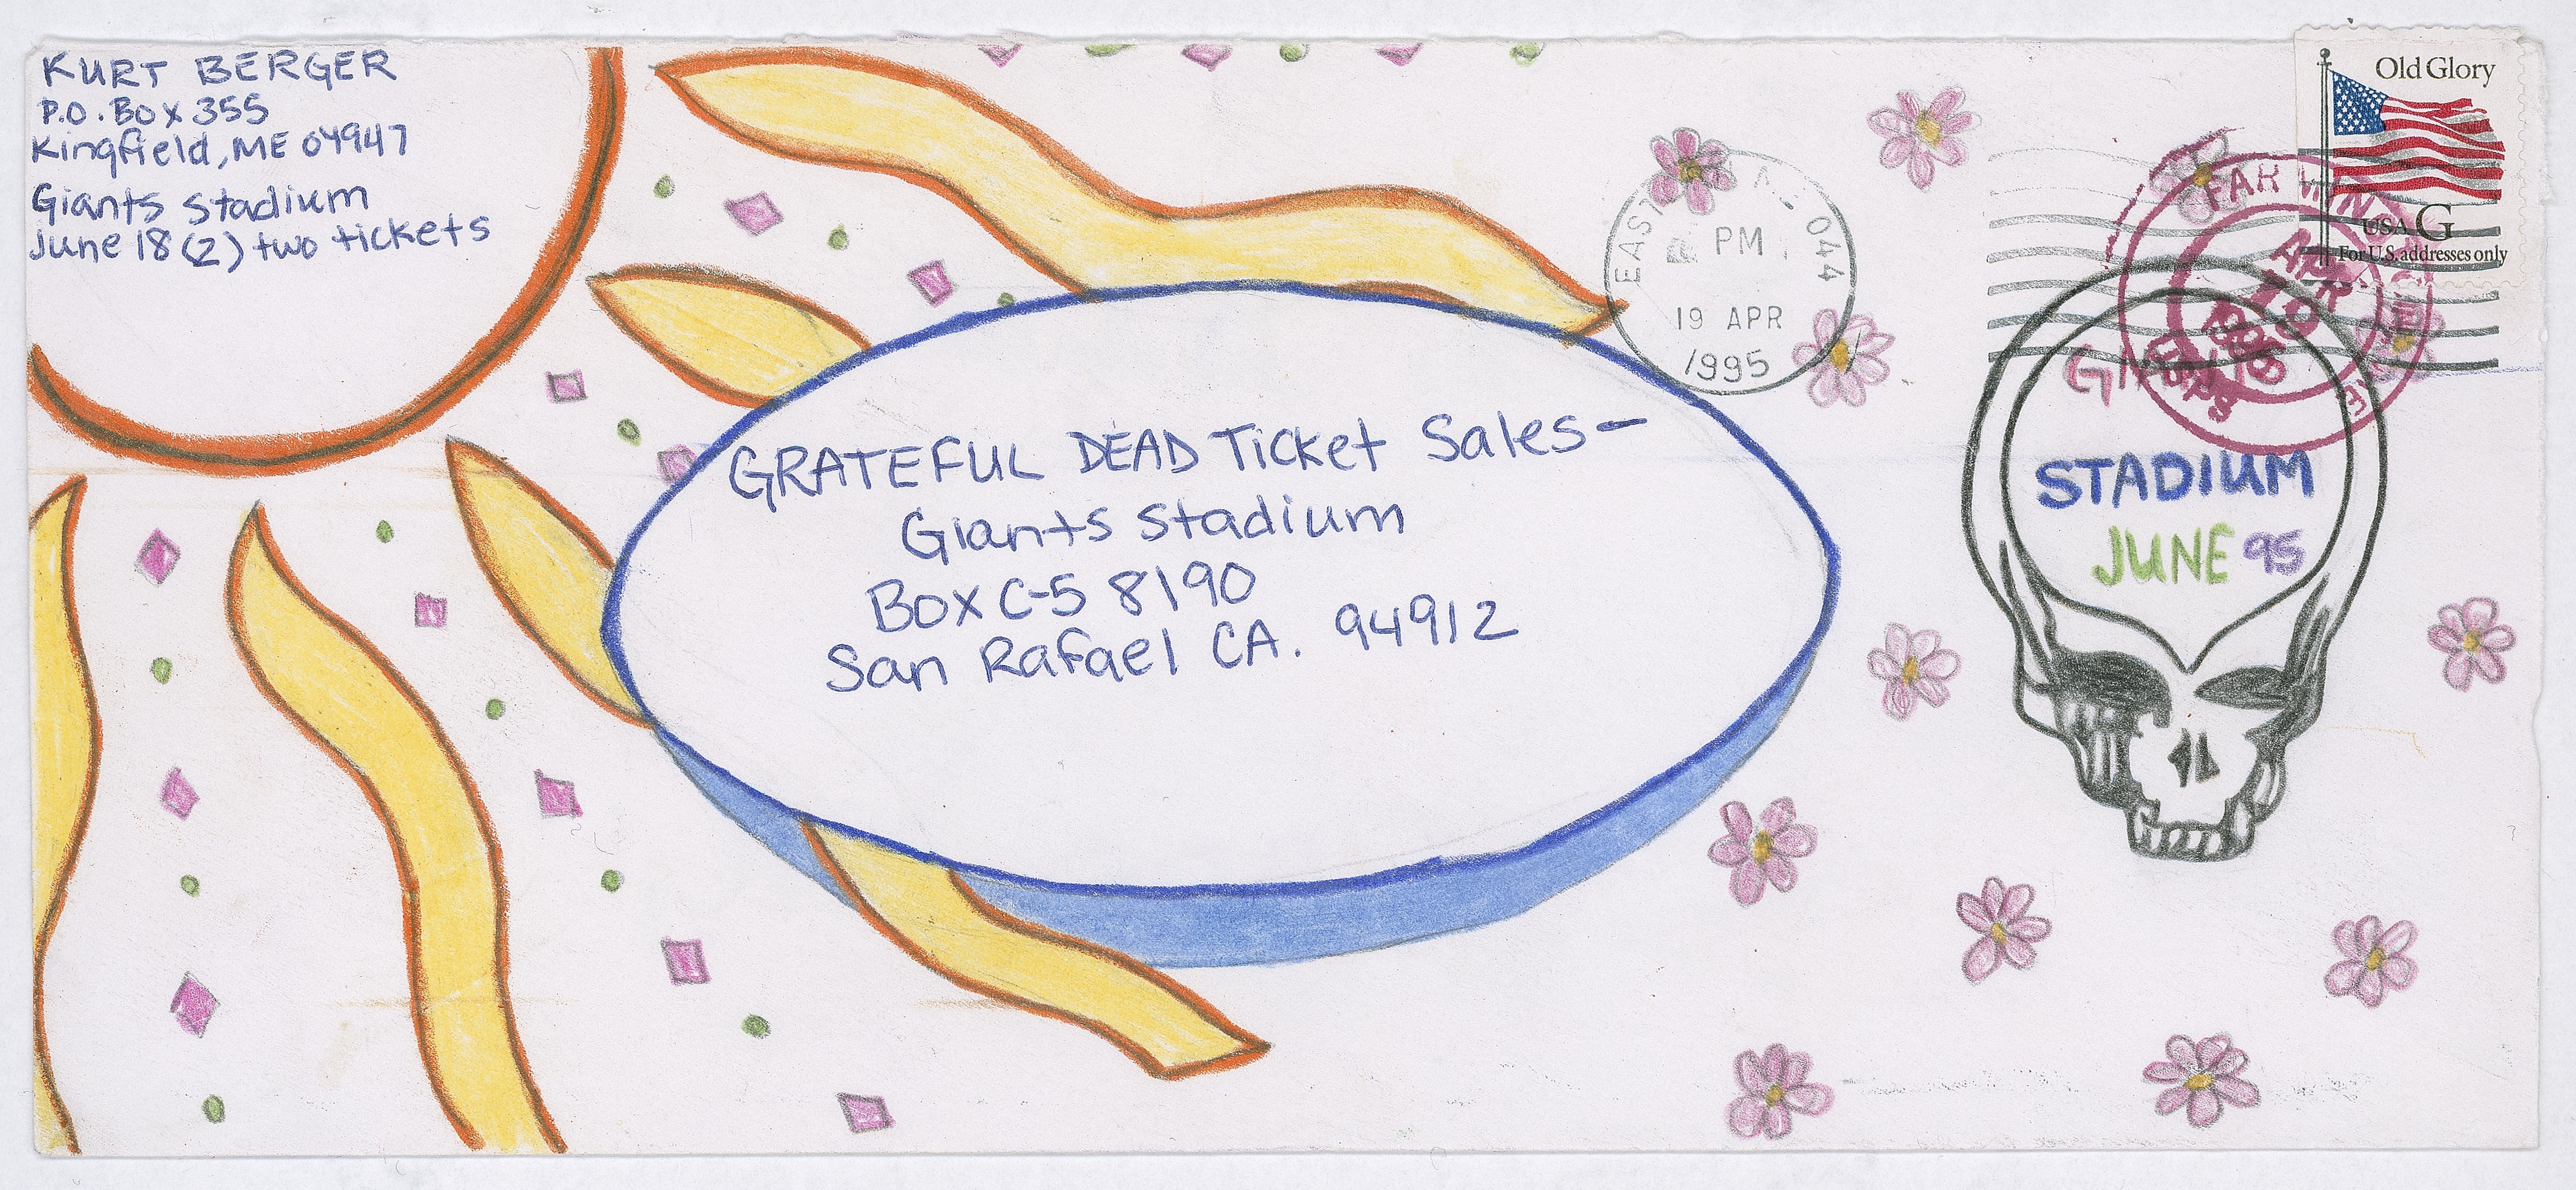 KURT BERGER
P.O. Box 355
Kingfield, ME 04947
Giants Stadium
June 18 (2) two tickets
Old Glory
USA G
For U.S. addresses only
PM
19 APR
1995
FAR
APR
19
1995
USPS
GRATEFUL DEAD Ticket Sales-
Giants Stadium
Box C-S 8190
San Rafael CA. 94912
GIANTS
STADIUM
JUNE 95